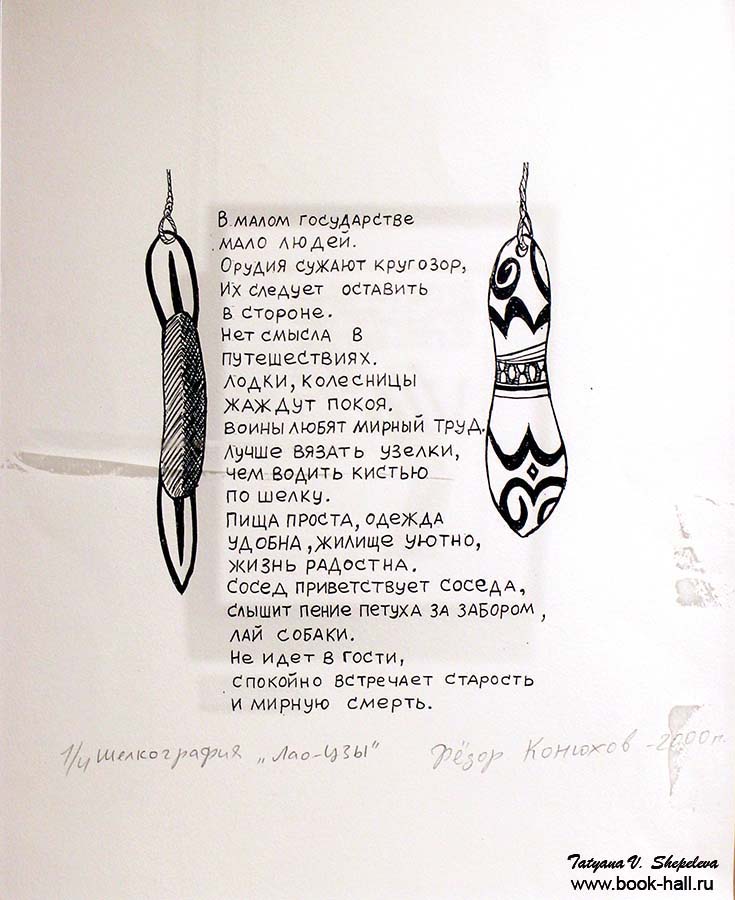 В малом государстве
мало людей.
Орудия сужают кругозор,
Их следует оставить
в стороне.
Нет смысла в
путешествиях.
Лодки, колесницы
жаждут покоя.
Воины любят мирный труд.
Лучше вязать узелки,
чем водить кистью
по шелку.
Пища проста, одежда
удобна, жилище уютно,
жизнь радостна.
Сосед приветствует соседа,
слышит пение петуха за забором,
лай собаки.
Не идет в гости,
спокойно встречает старость
и мирную смерть.
1/4 шелкография „Лао-Цзы" Фёдор Конюхов - 2000 г.
Tatyana V. Shepeleva
www.book-hall.ru